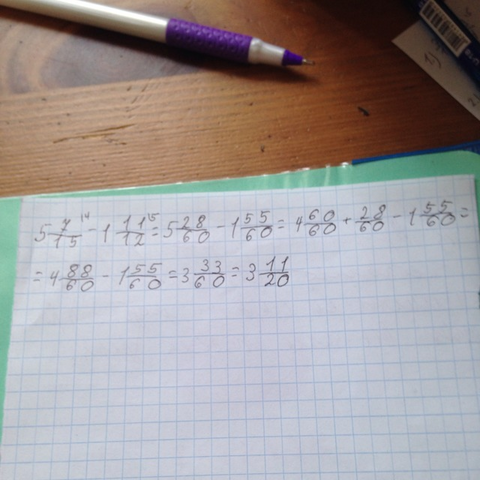 5 7/15 ¹⁴ - 1 11/12 ⁵ = 5 28/60 - 1 55/60 = 4 60/60 + 28/60 - 1 55/60 =
= 4 88/60 - 1 55/60 = 3 33/60 = 3 11/20